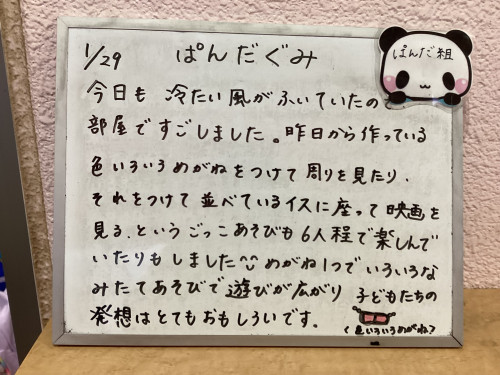 1/29 ぱんだぐみ
ぱんだ組
今日も 冷たい風がふいていたの
部屋ですごしました。昨日から作っている
色いろいろめがねをつけて周りを見たり、
それをつけて並べているイスに座って映画を
見る、というごっこあそびも6人程で楽しんで
いたりもしました^^めがね1つでいろいろな
みたてあそびで遊びが広がり 子どもたちの
発想はとてもおもしろいです。
(色いろいろめがね?